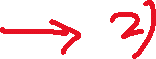 → 2)